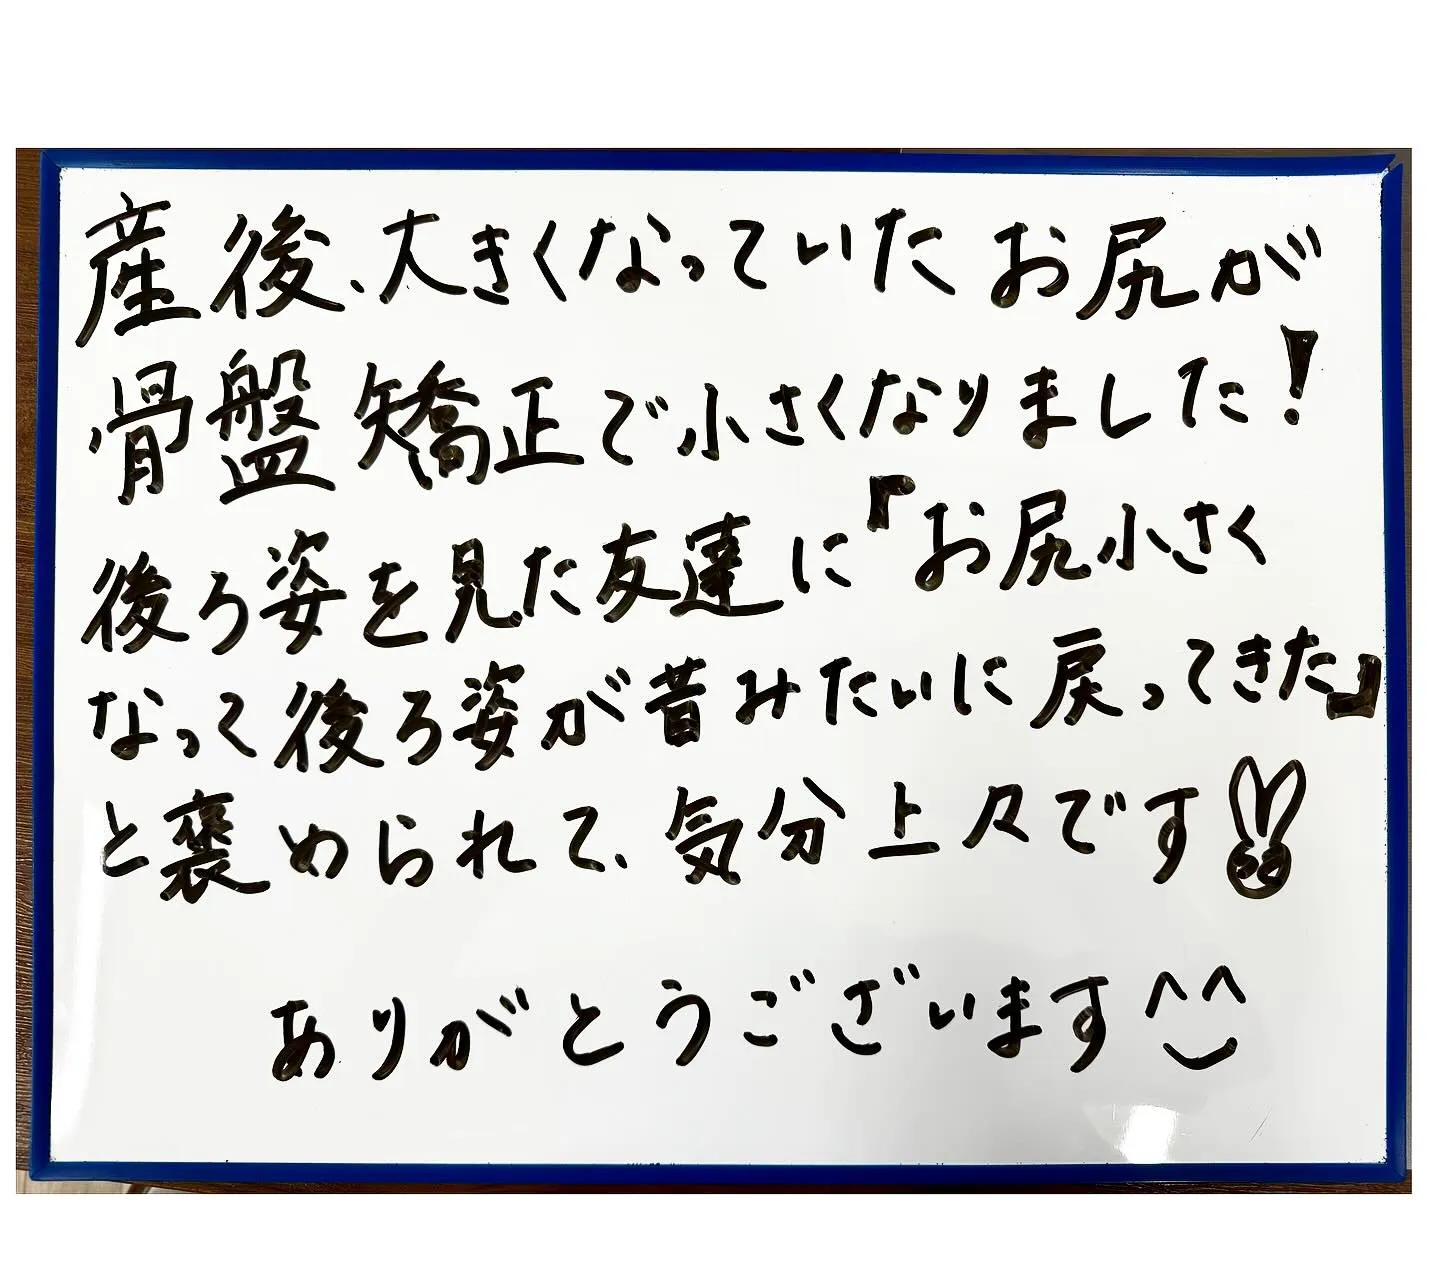 産後、大きくなっていたお尻が
骨盤矯正で小さくなりました!
後ろ姿を見た友達に『お尻小さく
なって後ろ姿が昔みたいに戻ってきた』
と褒められて、気分上々です
ありがとうございます^^